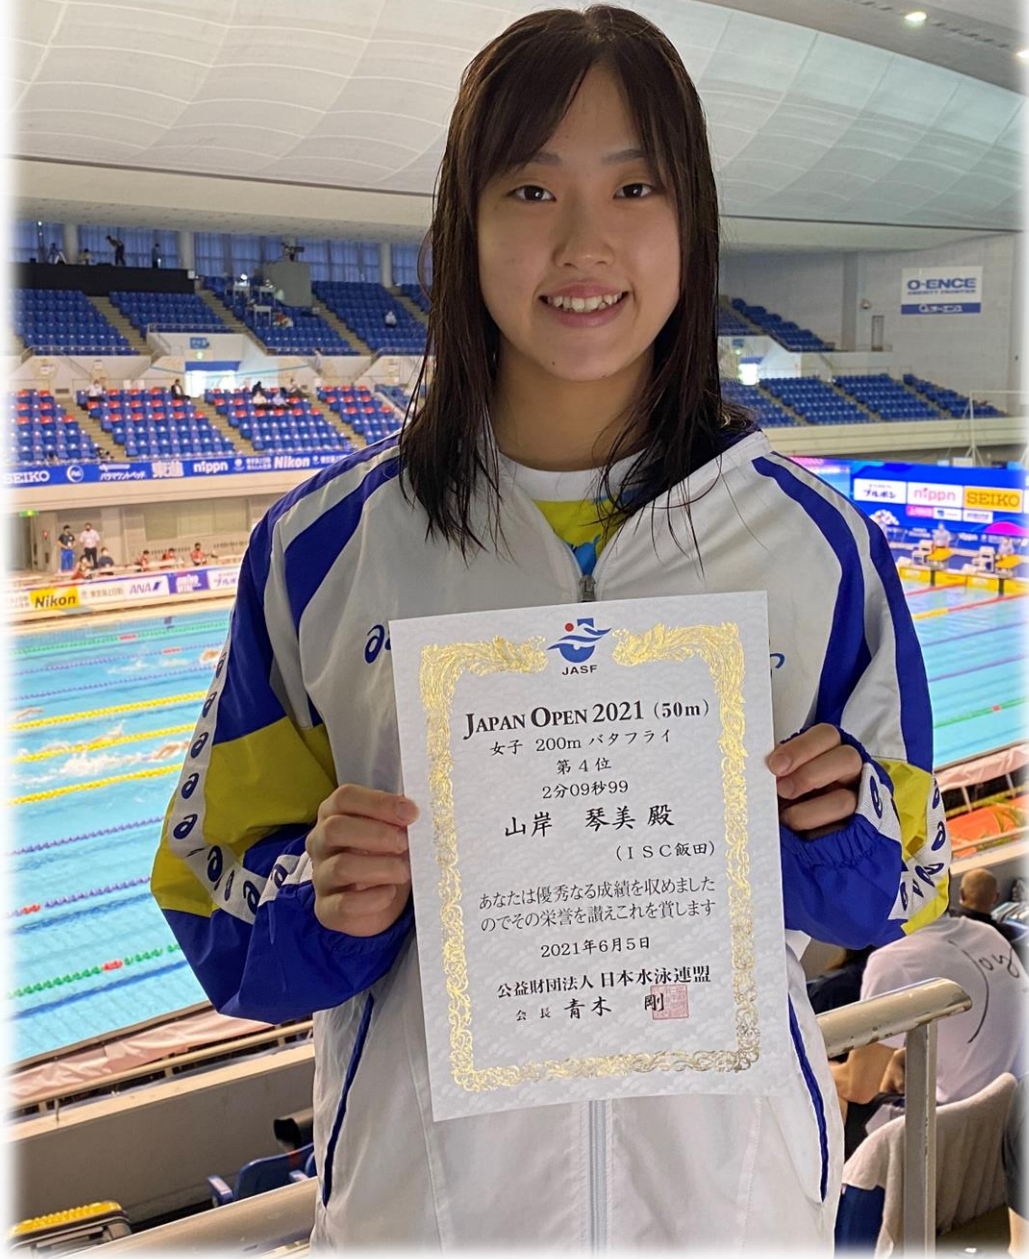 O-ENCE
SEIKO
パラマウントベッド
東進
nippn
Nikon
ブルボン
nippn
SEIKO
Nikon
ANA
JASF
JAPAN OPEN 2021 (50m)
女子 200m バタフライ
第 4 位
2分09秒99
山岸 琴美 殿
(ISC飯田)
あなたは優秀なる成績を収めました
のでその栄誉を讃えこれを賞します
2021年6月5日
公益財団法人 日本水泳連盟
会長 青木 剛